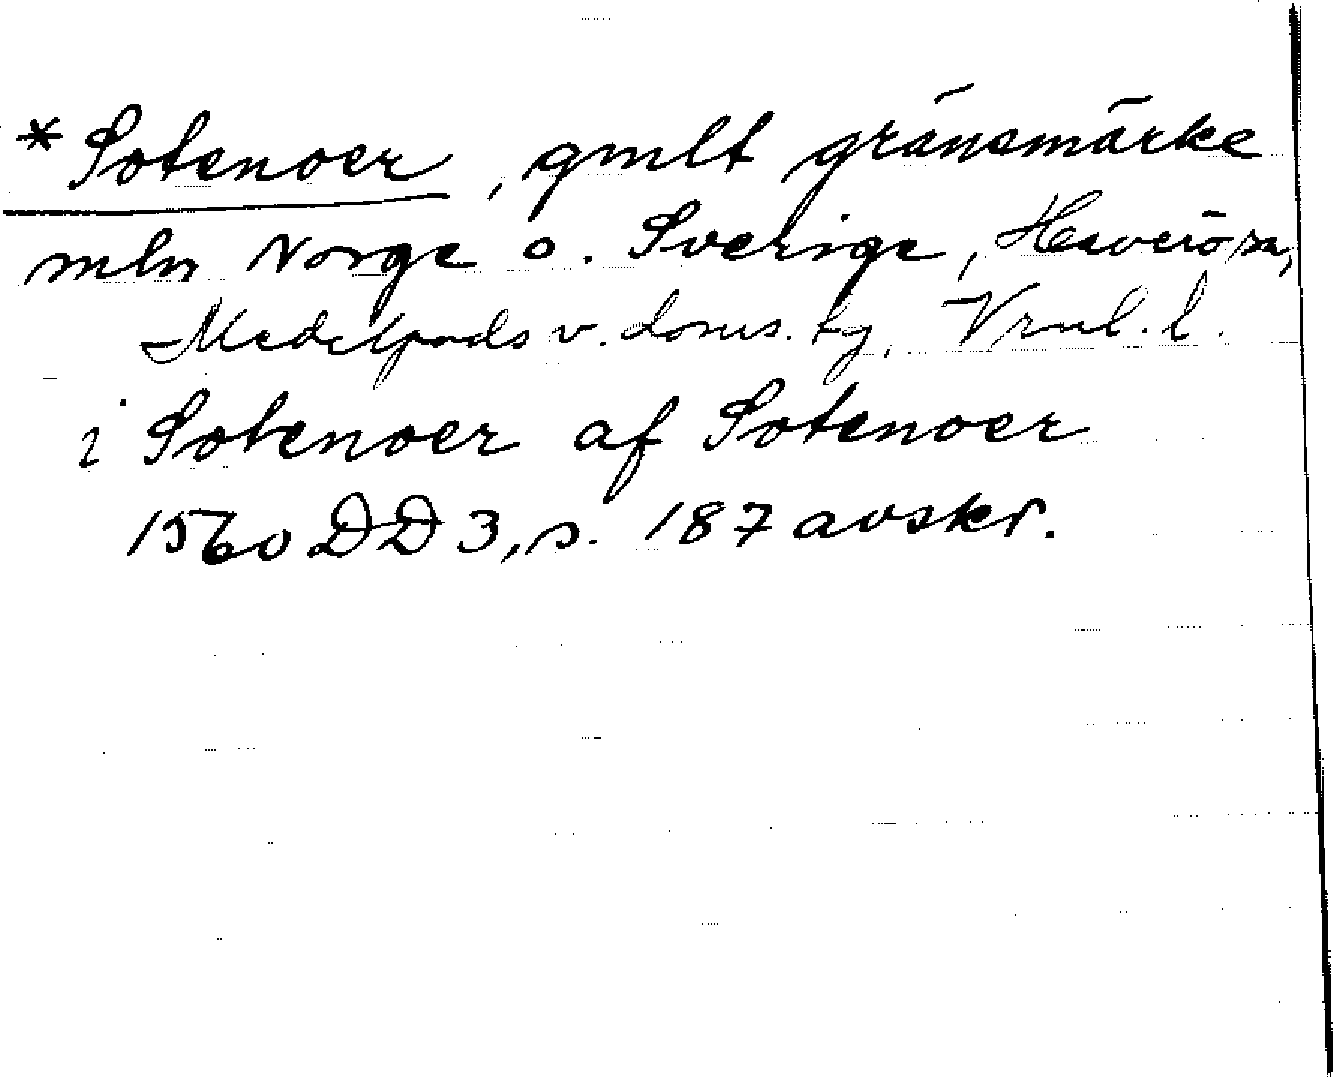 *Sotenoer, gmlt gränsmärke
mln Norge o. Sverige, Haverö sn,
Medelpads v. doms. hg, Vrnl. l.
i Sotenoer af Sotenoer
1560 DD 3, s. 187 avskr.